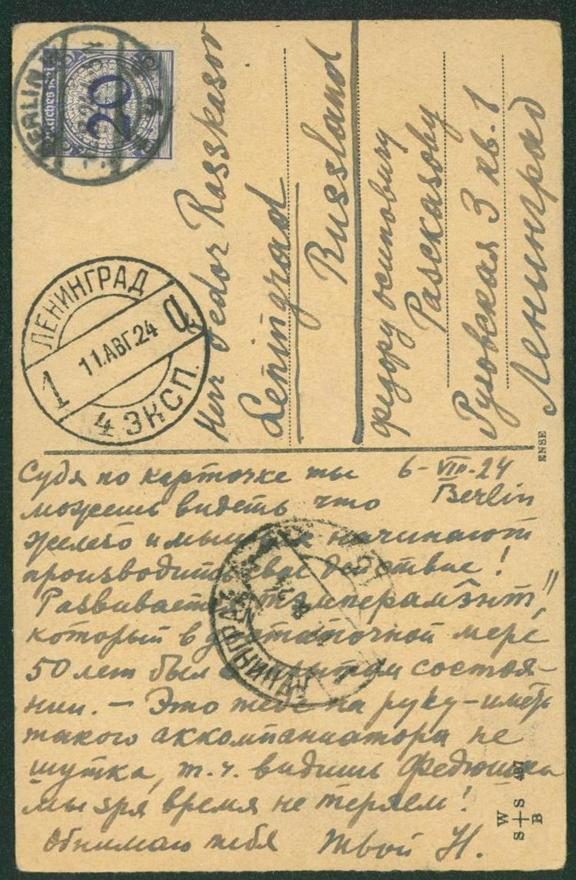 BERLIN
Deutsches Reich
20
ЛЕНИНГРАД
11.АВГ.24
1
а
4 ЭКСП.
Herr Fedor Rasskasov
Leningrad
Russland
Федору Осиповичу
Расскасову
Рузовская 3 кв. 1
Ленинград
ENSE
6-VIII-24
Berlin
Судя по карточке ты
можешь видеть что
железо и мышьяк начинают
производить свое действие!
Развивается „темперамэнт",
который в достаточной мере
50 лет был в скрытом состоя-
нии. — Это тебе на руку — иметь
такого аккомпаниатора не
шутка, т. ч. видишь Федюшка
мы зря время не теряем!
Обнимаю тебя Твой Н.
ЛЕНИНГРАД
W
S+S
B